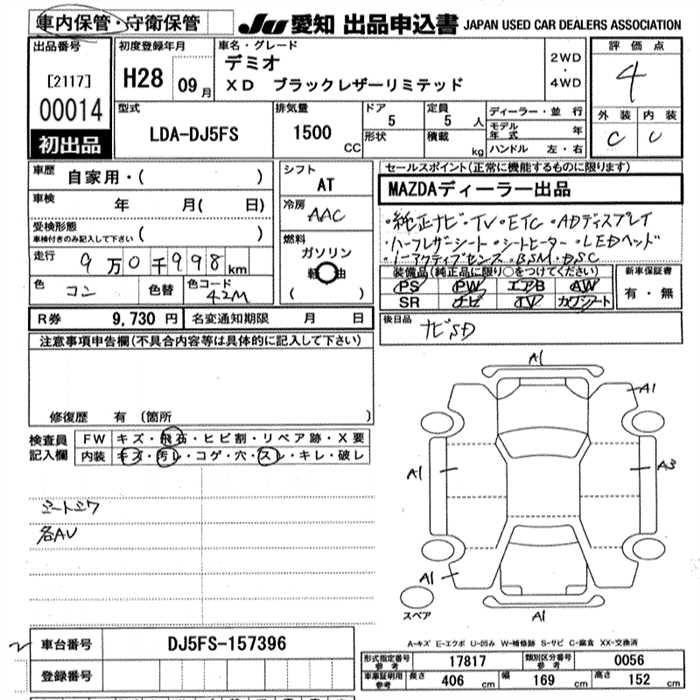 車内保管・守衛保管
JU 愛知 出品申込書 JAPAN USED CAR DEALERS ASSOCIATION
出品番号
[2117]
00014
初出品
初度登録年月
H28 09月
車名・グレード
デミオ
XD ブラックレザーリミテッド
2WD
・
4WD
評価点
4
外装 内装
C
型式
LDA-DJ5FS
排気量
1500 CC
ドア
5
形状
定員
5 人
積載
kg
ディーラー・並行
モデル年式 年
ハンドル 左・右
車歴 自家用・( )
車検 年 月( 日)
受検形態
車検付きのみ記入して下さい ( )
走行 9万0千998km
色 コン 色替 色コード 42M
シフト
AT
冷房
AAC
燃料
ガソリン
軽油
( )
R券 9,730円 名変通知期限 月 日
セールスポイント(正常に機能するものに限ります)
MAZDAディーラー出品
・純正ナビ・TV・ETC・ADディスプレイ
・ハーフレザーシート・シートヒーター・LEDヘッド
・iーアクティブセンス・BSM・DSC
装備品(純正品に限り○をつけてください)
PS PW エアB AW
SR ナビ TV カワシート
新車保証書
有・無
後日品
ナビSD
注意事項申告欄(不具合内容等は具体的に記入して下さい)
修復歴 有(箇所 )
検査員記入欄
FW キズ・飛石・ヒビ割・リペア跡・X要
内装 キズ・汚レ・コゲ・穴・スレ・キレ・破レ
シートシワ
各AU
A1
A1
A1
A3
A1
A1
スペア
A-キズ E-エクボ U-凹み W-補修跡 S-サビ C-腐食 XX-交換済
2
車台番号 DJ5FS-157396
登録番号
形式指定番号参考 17817 類別区分番号参考 0056
車庫証明用参考 長さ 406 cm 幅 169 cm 高さ 152 cm